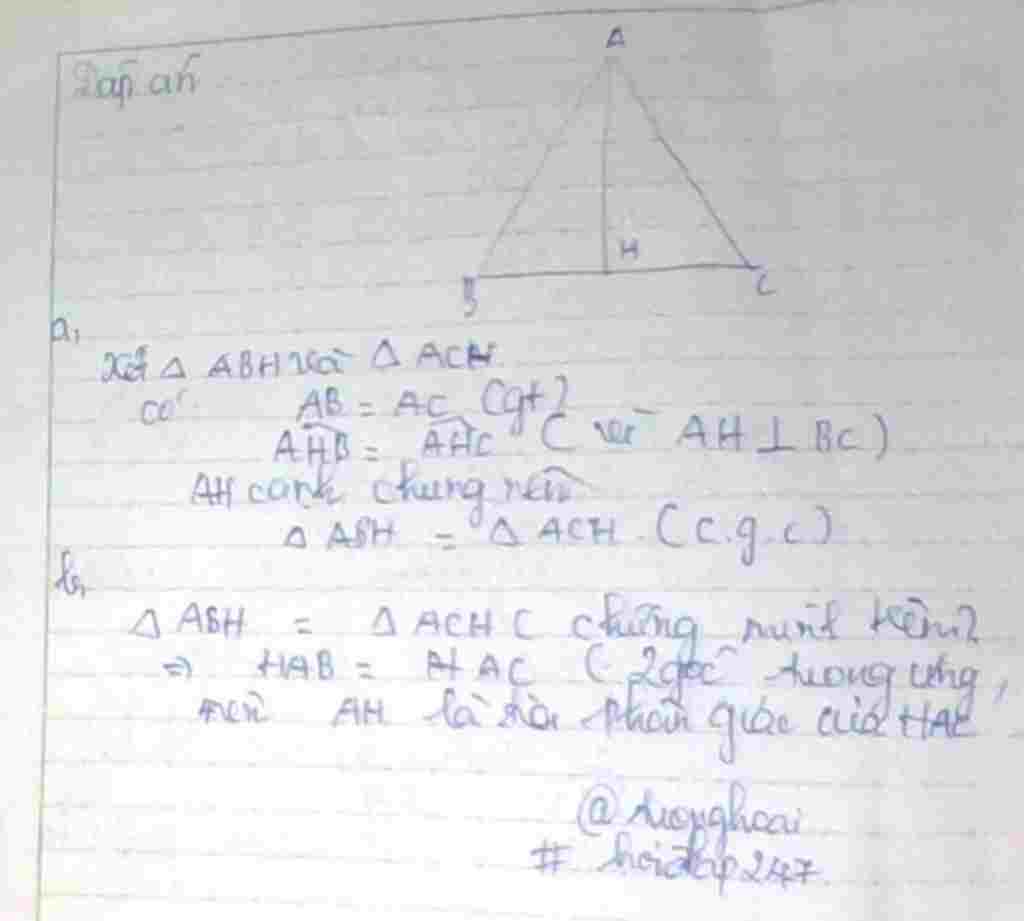 Đáp án
A
H
B
C
a,
Xét Δ ABH và Δ ACH
có: AB = AC (gt)
AHB = AHC ( vì AH ⊥ BC )
AH cạnh chung nên
Δ ABH = Δ ACH (c.g.c)
b,
Δ ABH = Δ ACH ( chứng minh trên)
=> HAB = HAC ( 2 góc tương ứng,
nên AH là phân giác của
@tuonghoai
# hoidap247